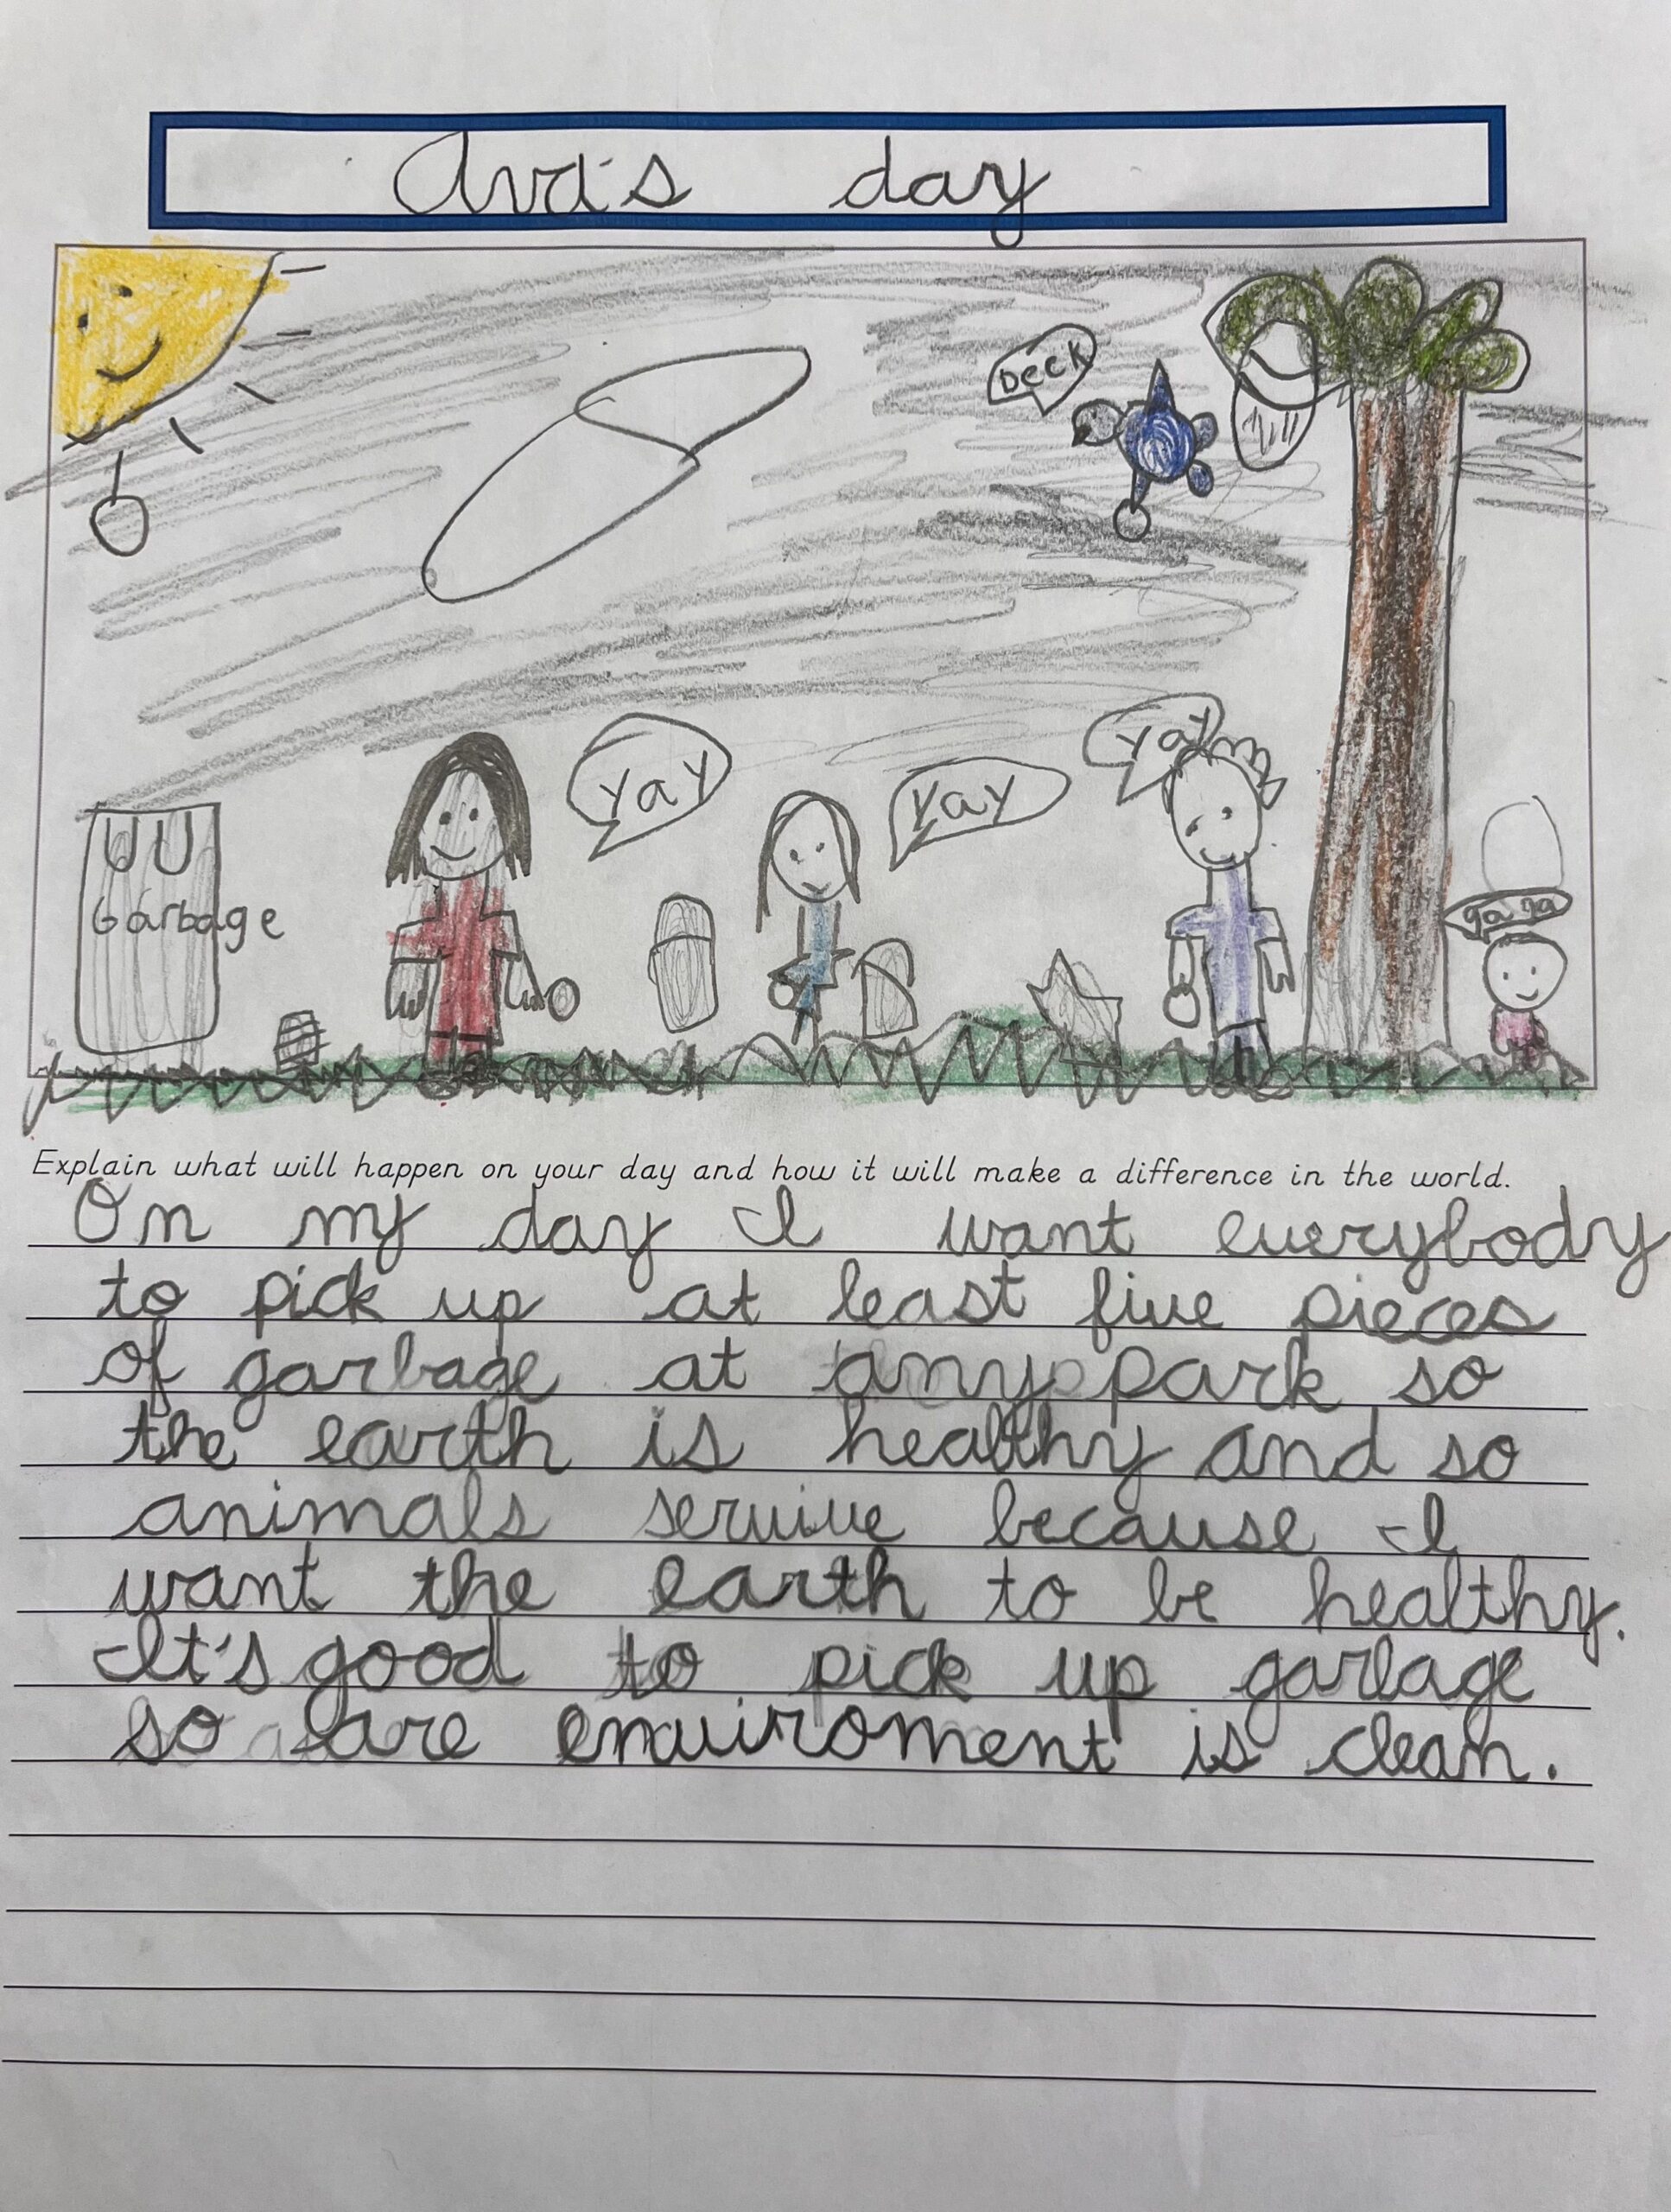 Ava's day
Deck
yay
yay
yay
Garbage
ga ga
Explain what will happen on your day and how it will make a difference in the world.
On my day I want everybody
to pick up at least five pieces
of garbage at any park so
the earth is healthy and so
animals servive because I
want the earth to be healthy.
It's good to pick up garbage
so are enviroment is clean.